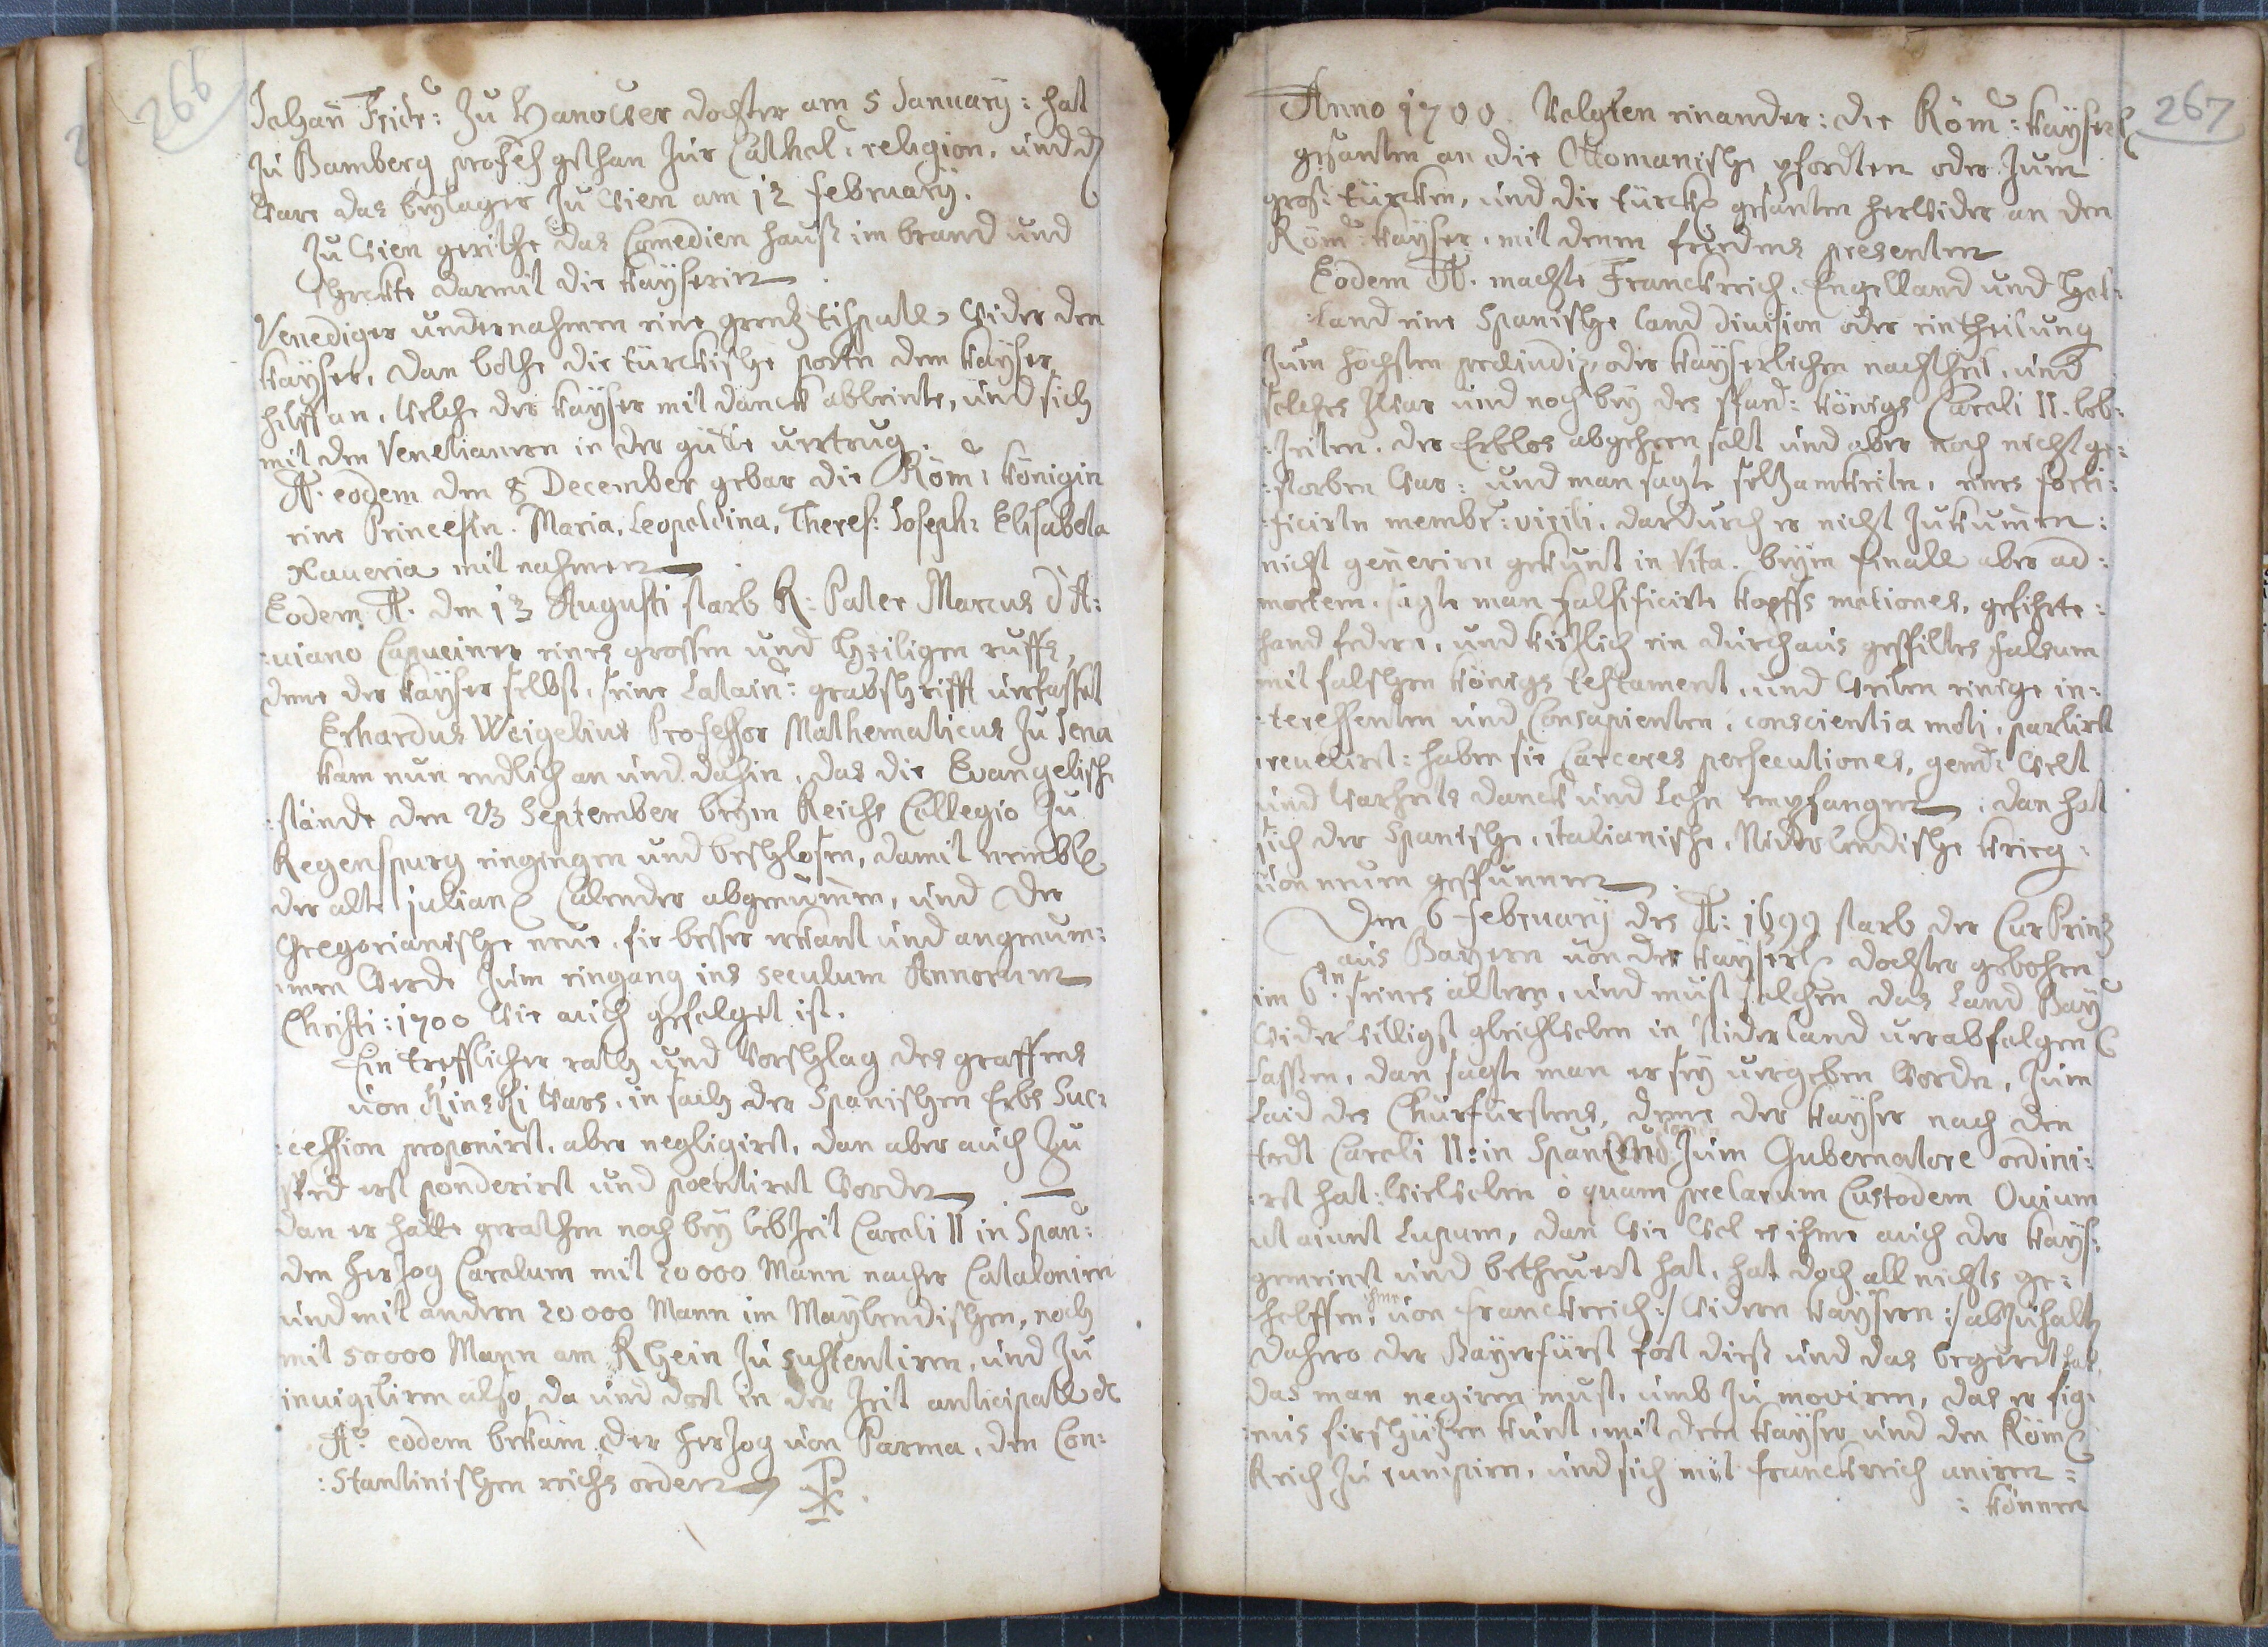 266
Johañ Fridr: zu Hanover dochter am 5 January: hat
zu Bamberg profeß gethan zur Cathol: religion, und dz
ware das beylager zu Wien am 12 february.
Zu Wien geriethe das Comedien hauß im brand und
schrekte darmit die Kayserin
Venediger undernahmen eine grentz wider den
Kayser, dan bothe die türckische porten dem Kayser
hilff an, welche der Kayser mit danck ableinte, und sich
mit den Venetianern in der gütte vertrug.
A. eodem den 8 December gebar die Röm: Königin
eine Princeßin. Maria, Leopoldina, Theres: Joseph: Elisabeta
Xaveria mit nahmen
Eodem A. den 13 Augusti starb R: Pater Marcus d'A:
:viano Capuciner eines grossen und Heiligen ruffs,
deme der Kayser selbst, seine Latain: grabschrifft verfasset
Erhardus Weigelius Professor Mathematicus zu Jena
kam nun endlich an und dahin, das die Evangelische
stände den 23 September beym Reichs Collegio zu
Regenspurg eingingen und beschlosen, damit nembl
der alte julian Calender abgenumen, und der
Gregorianische neue, fir besser erkant und angenum:
:men werde zum eingang ins seculum Annorum
Christi: 1700 wie auch gefolget ist.
Ein trefflicher rath und Vorschlag des graffens
von Kinski wars, in sach der Spanischen Erbs Suc:
:cession proponirt, aber negligirt, dan aber auch zu
sped erst ponderirt und poentirt worden
dan er hatte gerathen noch bey lebzeit Caroli II in Span:
den Herzog Carolum mit 20000 Mann nacher Catalonien
und mit andern 20000 Mann im Maylendischen, noch
mit 50000 Mann am Rhein zu sustentiren, und zu
invigiliren also, da und dort in der zeit anticipatte etc
Aº eodem bekam der Herzog von Parma, den Con:
:stantinischen reichs orden
267
Anno 1700. Volgten einander: die Röm: Kayserl
gesanten an die Ottomanische pfordten oder zum
groß türcken, und die türck gesanten herwider an den
Röm: Kayser, mit denen fridens presenten
Eodem A. machte Franckreich, Engelland und Hol:
:land eine Spanische land division oder eintheilung
zum höchsten oder Kayserlichen nachtheil, und
solches zwar und noch bey des Königs Caroli II. leb:
:zeiten, der Erblos abgehen solt und aber noch nicht ge:
:storben war: und man sagte seltzamkeiten, eines forti:
:ficirten membr: virili, dardurch er nicht zukumen:
nicht generiren gekunt in Vita. beym finale aber ad:
mortem, sagte man falsificirte Kopffs motiones, gefihrte:
hand federn, und kirzlich ein durchaus gespiltes falsum
mit falschen Königs testament, und weilen einige in:
:teressenten und Consapienten, conscientia moti, partirt
revelirt: haben sie Carceres persecutiones, welt
und warheits danck und Lohn empfangen: dan hat
sich der Spanische, italianische, Niderlendische Krieg
von neuen gespunnen
Den 6 february des A: 1699 starb der Cur Printz
aus Bayern von der Kayserl dochter gebohren
im 6tn seines alters, und must solchen das Land Bay
widerwilligst gleichwolen in Niderland verabfolgen
lassen, dan sagte man er sey vergeben worden, zum
Laid des Churfürstens, deme der Kayser nach den
todt Caroli II: in Span zum Gubernatore ordini:
:rt hat: wiewolen ô quam preclarum Custodem Ovium
ut aiunt Lupum, dan wie wol es ihme auch der Kays:
gemeint und betheuert hat, hat doch all nichts ge:
holffen, ihme von franckreich:/ widern Kaysern:/ abzuhalt
dahero der Bayrfürst fort diß und das begerdt hat
das man negiren must, umb zu moviren, das er sig:
:nis firschützen kunt, mit dem Kayser und den Röm
Reich zu rumpirn, und sich mit franckreich uniren:
: können